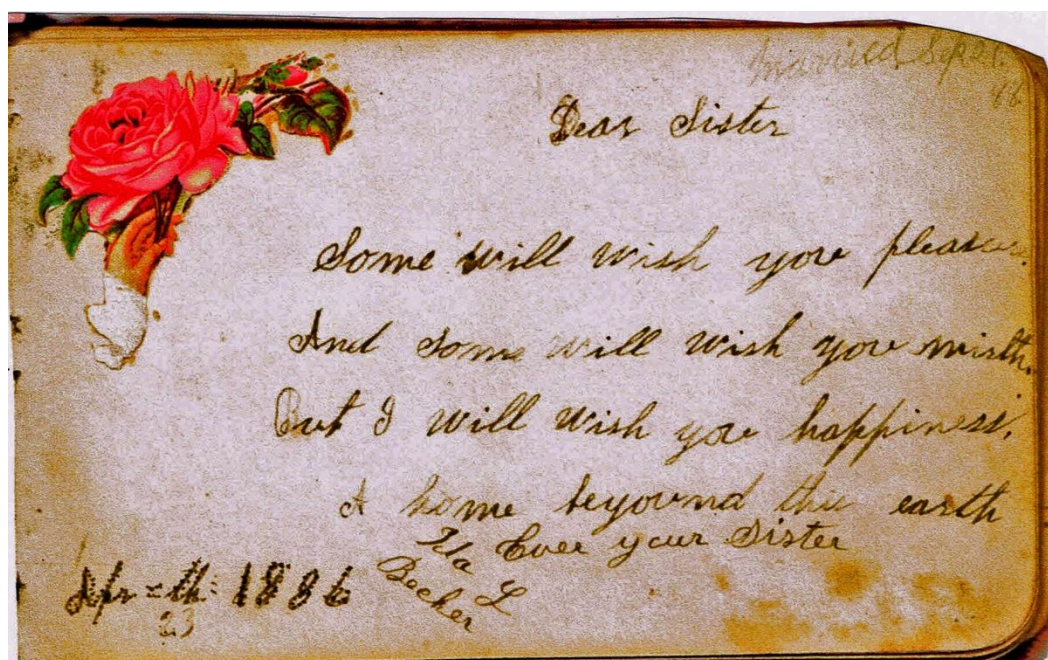 married
16
Dear Sister
Some will wish you pleasure.
And some will wish you mirth.
But I will wish you happiness,
A home beyound this earth
Ever your Sister
L
Becker
1886
23